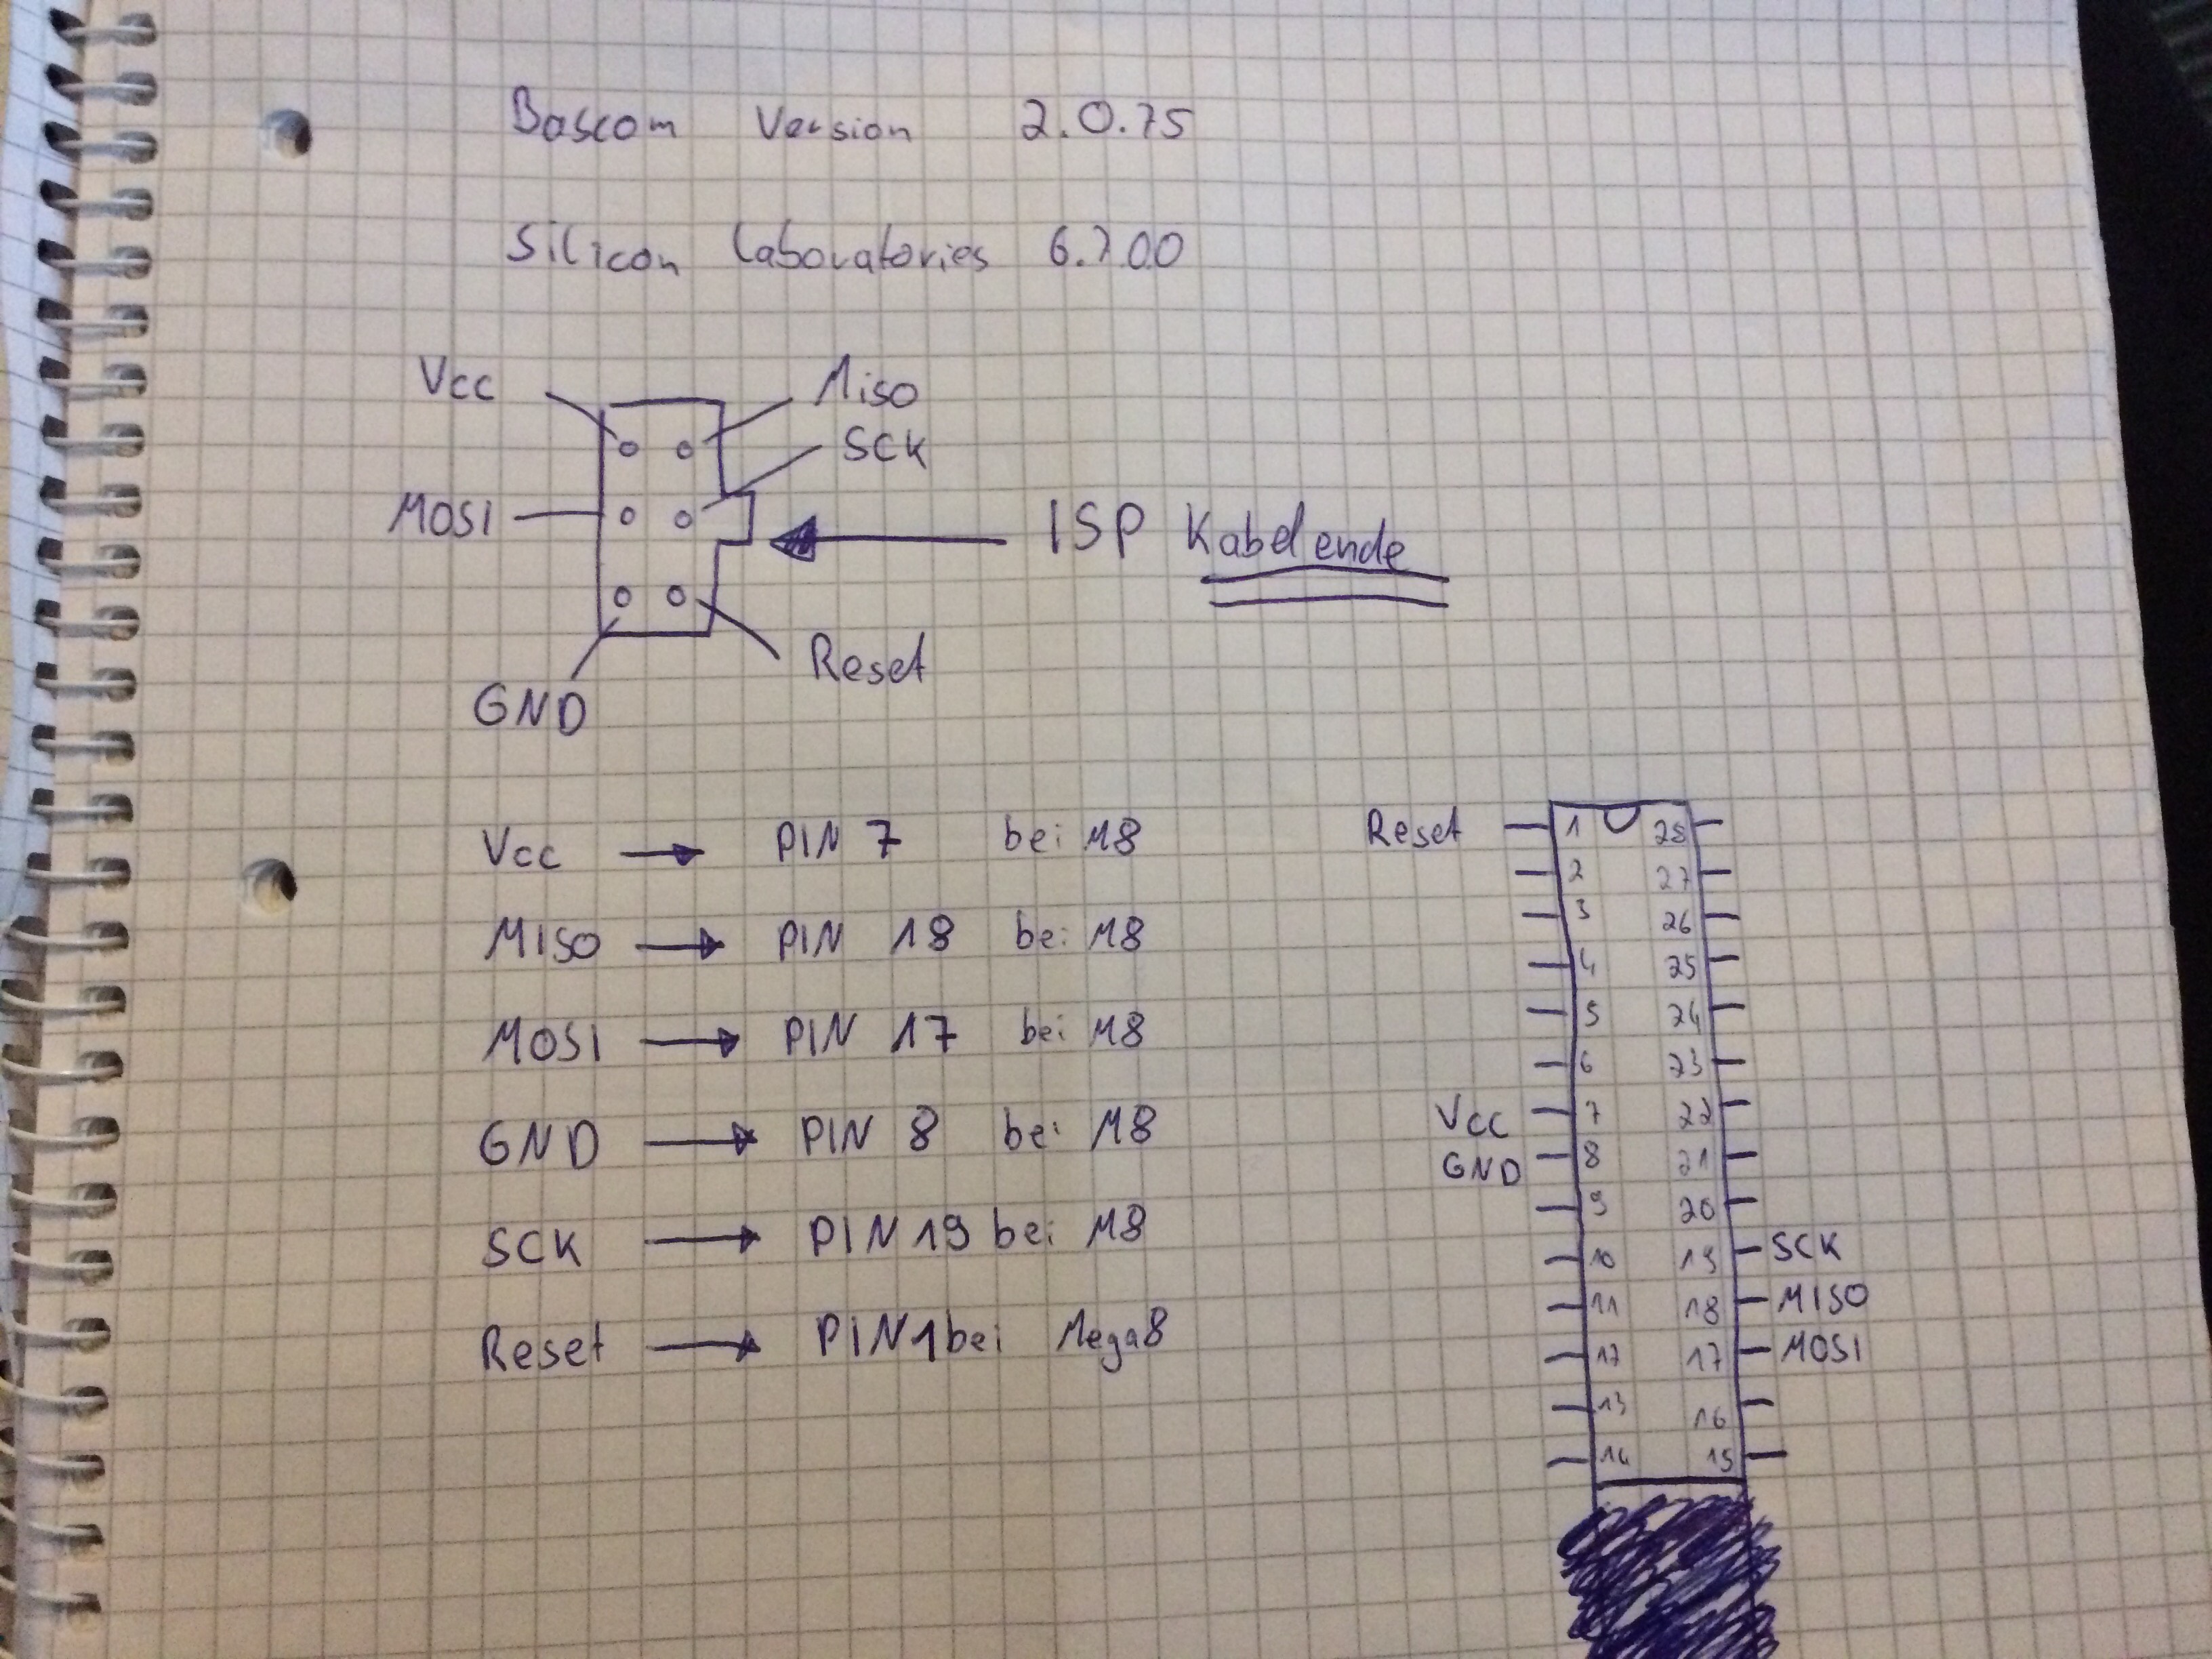 Bascom Version 2.0.75
Silicon Laboratories 6.7.00
Vcc
Miso
SCK
MOSI
ISP Kabelende
Reset
GND
Vcc → PIN 7 bei M8
MISO → PIN 18 bei M8
MOSI → PIN 17 bei M8
GND → PIN 8 bei M8
SCK → PIN 19 bei M8
Reset → PIN 1 bei Mega8
Reset 1 28
2 27
3 26
4 25
5 24
6 23
Vcc 7 22
GND 8 21
9 20
10 19 SCK
11 18 MISO
12 17 MOSI
13 16
14 15